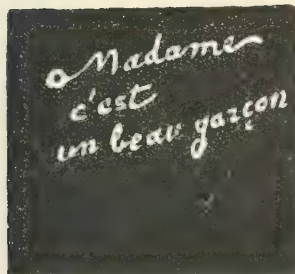 Madame
c'est
un beau garçon